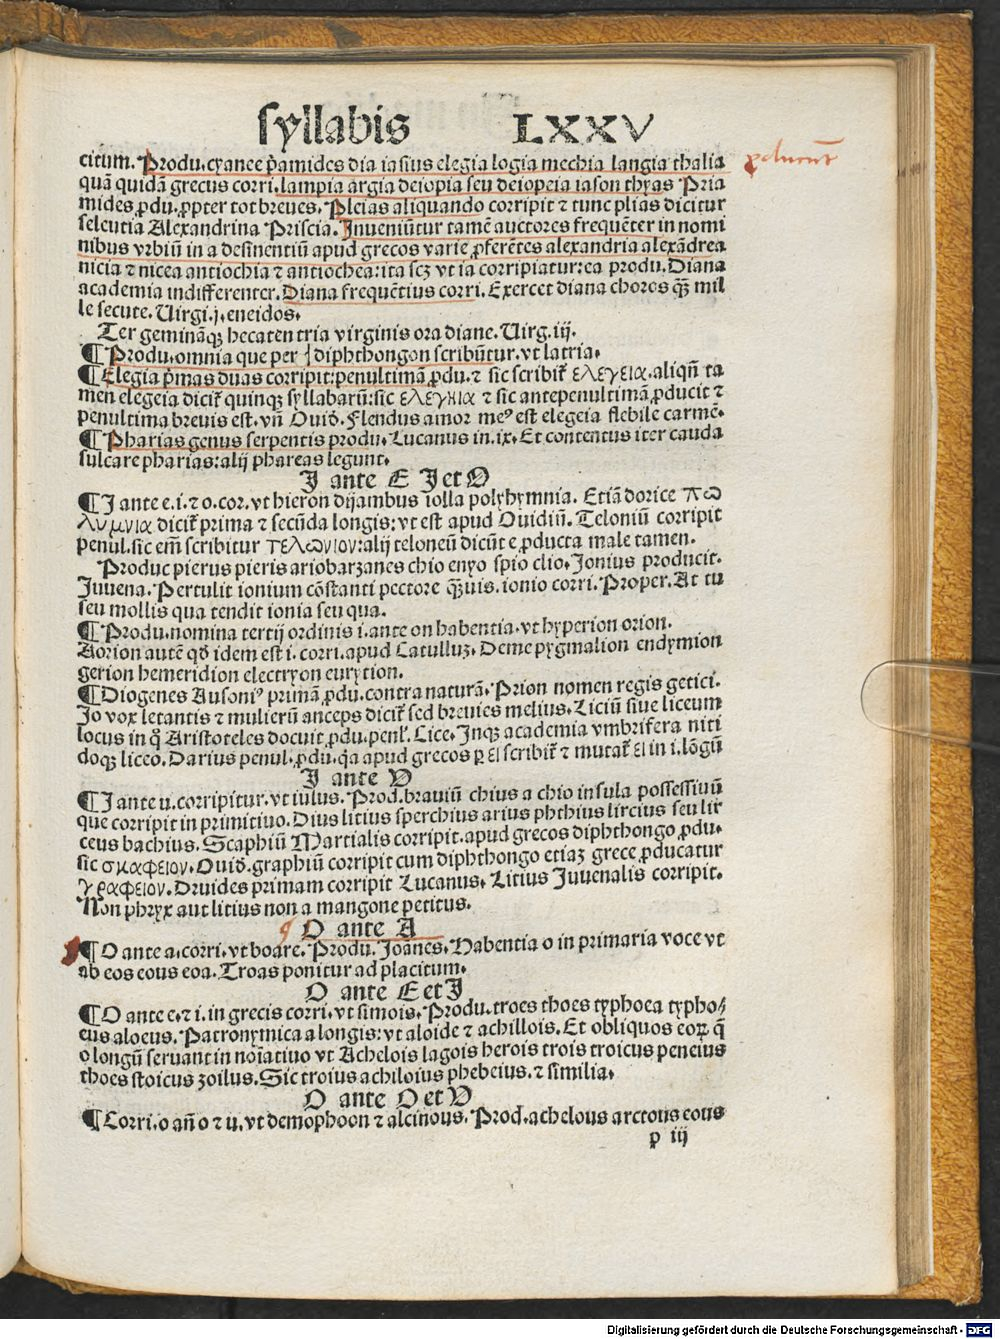 syllabis LXXV
citum. Produ. cyanee p̄amides dia iasius elegia logia mechia langia thalia
ꝓducunt
quā quidā grecus corri. lampia argia deiopia seu deiopeia iason thyas Pria
mides ꝓdu. ꝓpter tot breues. Pleias aliquando corripit ⁊ tunc plias dicitur
seleutia Alexandrina Priscia. Inueniūtur tamē auctores frequēter in nomi
nibus vrbiū in a desinentiū apud grecos varie ꝓferētes alexandria alexādrea
nicia ⁊ nicea antiochia ⁊ antiochea: ita scꝫ vt ia corripiatur: ea produ. Diana
academia indifferenter. Diana frequētius corri. Exercet diana choros quā mil
le secute. Uirgi. j. eneidos.
Ter gemināqꝫ hecaten tria virginis ora diane. Uirg. iij.
¶ Produ. omnia que per diphthongon scribūtur. vt latria.
¶ Elegia p̄mas duas corripit: penultimā ꝓdu. ⁊ sic scribit̄ ελεγεια. aliqn̄ ta
men elegeia dicit̄ quinqꝫ syllabarū: sic ελεγηια ⁊ sic antepenultimā ꝓducit ⁊
penultima breuis est. vn̄ Ouid. Flendus amor meꝰ est elegeia flebile carmē.
¶ Pharias genus serpentis produ. Lucanus in. ix. Et contentus iter cauda
sulcare pharias: alij phareas legunt.
I ante E I et O
¶ I ante e. i. ⁊ o. cor. vt hieron dijambus iolla polyhymnia. Etiā dorice πω
λυμνια dicit̄ prima ⁊ secūda longis: vt est apud Ouidiū. Teloniū corripit
penul. sic em̄ scribitur τελωνιον: alij teloneū dicūt e ꝓducta male tamen.
Produc pierus pieris ariobarzanes chio enyo spio clio. Jonius producit.
Juuena. Pertulit ionium cōstanti pectore q̄uis. ionio corri. Proper. At tu
seu mollis qua tendit ionia seu qua.
¶ Produ. nomina tertij ordinis i. ante on habentia. vt hyperion orion.
Aorion autē qd̄ idem est i. corri. apud Catulluꝫ. Deme pygmalion endymion
gerion hemeridion electryon eurytion.
¶ Diogenes Ausoniꝰ primā ꝓdu. contra naturā. Prion nomen regis getici.
Jo vox letantis ⁊ mulierū anceps dicit̄ sed breuies melius. Liciū siue liceum
locus in q̊ Aristoteles docuit ꝓdu. penl̄. Cice. Inqꝫ academia vmbrifera niti
doqꝫ liceo. Darius penul. ꝓdu. q̄a apud grecos ꝑ ει scribit̄ ⁊ mutat̄ ει in i. lōgū
I ante V
¶ I ante u. corripitur. vt iulus. Prod. brauiū chius a chio insula possessiuū
que corripit in primitiuo. Dius litius sperchius arius phthius lircius seu lir
ceus bachius. Scaphiū Martialis corripit. apud grecos diphthongo ꝓdu.
sic σμαφειον. Ouid. graphiū corripit cum diphthongo etiaꝫ grece ꝓducatur
γραφειον. Druides primam corripit Lucanus. Litius Juuenalis corripit.
Non phryx aut litius non a mangone petitus.
O ante A
¶ O ante a. corri. vt boare. Produ. Joanes. Habentia o in primaria voce vt
ab eos eous eoa. Troas ponitur ad placitum.
O ante E et I
¶ O ante e. ⁊ i. in grecis corri. vt simois. Produ. troes thoes typhoea typho⸗
eus aloeus. Patronymica a longis: vt aloide ⁊ achillois. Et obliquos eoꝝ q̄
o longū seruant in noīatiuo vt Achelois lagois herois trois troicus peneius
thoes stoicus zoilus. Sic troius achiloius phebeius. ⁊ similia.
O ante O et V
¶ Corri. o an̄ o ⁊ u. vt demophoon ⁊ alcinous. Prod. achelous arctous eous
p iij
Digitalisierung gefördert durch die Deutsche Forschungsgemeinschaft - DFG